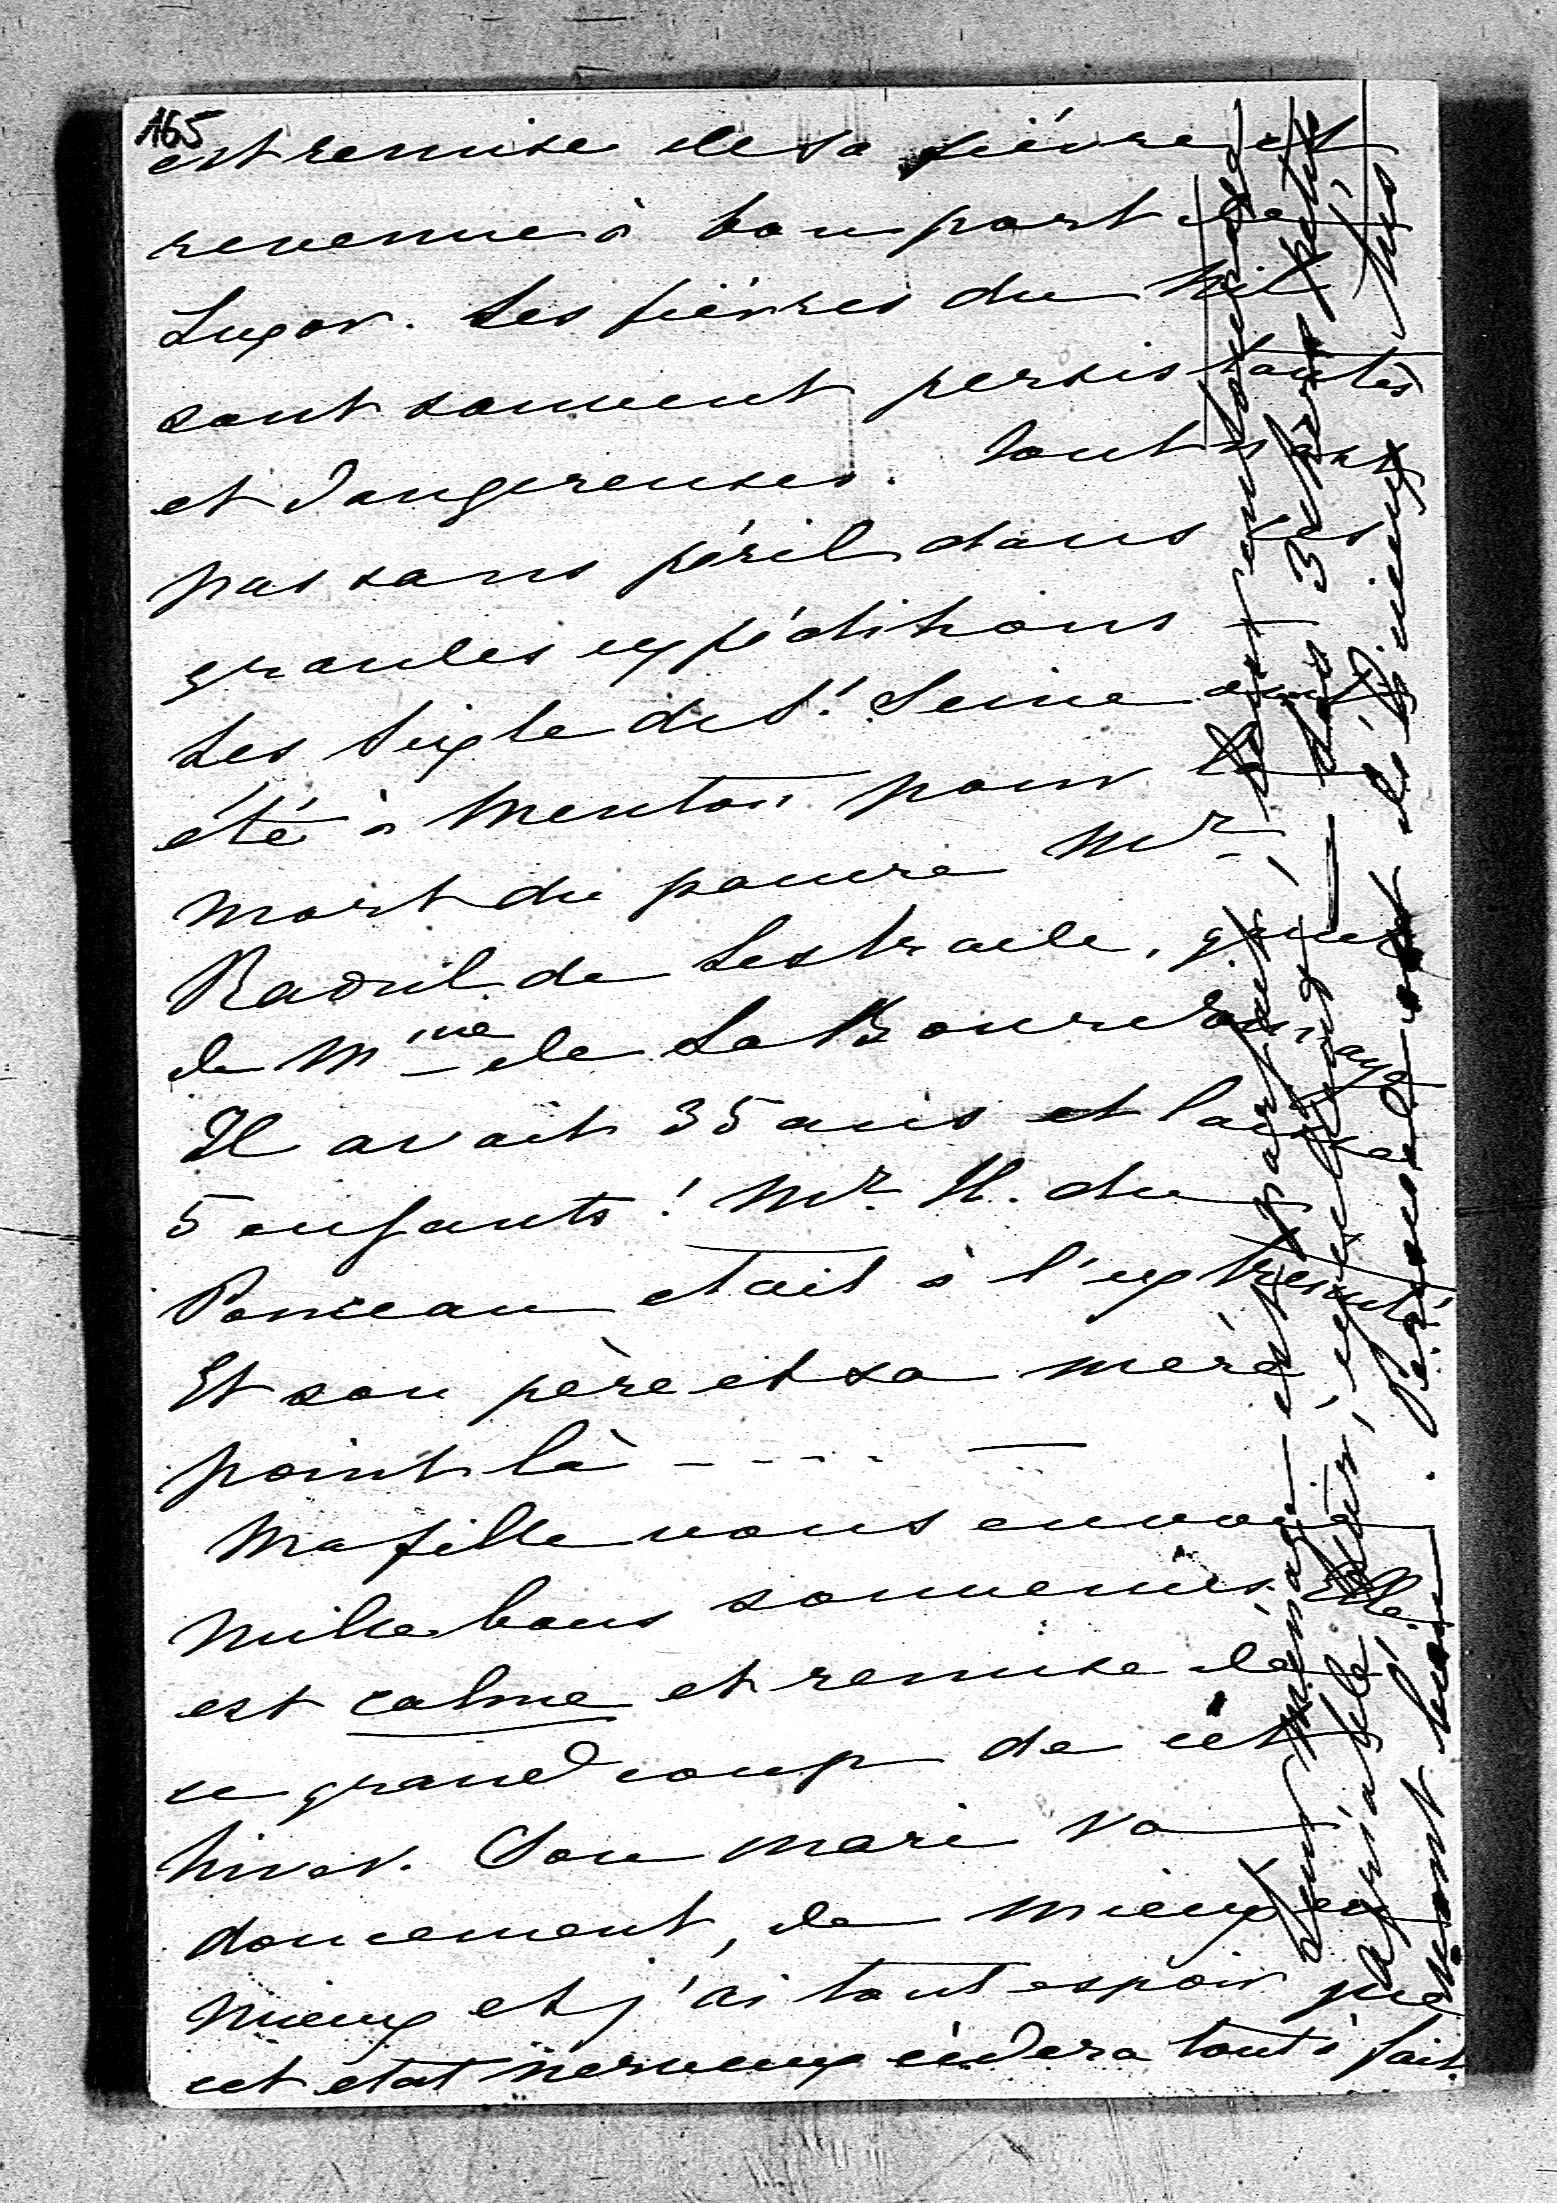 165
est remise de sa fièvre et
revenue à bon port de
Luxor. Les fièvres du Nil
sont souvent persistantes
et dangereuses. Tout n'est
pas sans péril dans les
grandes expéditions —
Les Sixte de St. Seine ont
été à Menton pour la
mort du pauvre Mr
Raoul de Lestrade, gendre
de Mme de La Bourdonnaye
Il avait 35 ans et laisse
5 enfants ! Mr. H. du
Ponceau était à l'extrémité
Et son père et sa mère
point là - - - - —
Ma fille vous envoie
mille bons souvenirs. Elle
est calme et remise de
ce grand coup de cet
hiver. Son mari va
doucement, de mieux en
mieux et j'ai tout espoir que
cet état nerveux cèdera tout à fait.
Leur ménage est parfait,
agréable, exultant — les 3 très petits
sont bien. Personnellement je vais mieux